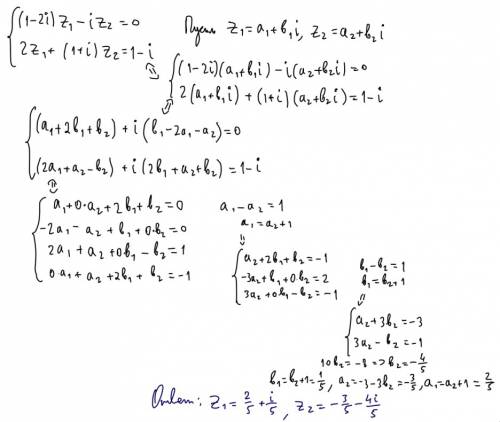 (1-2i)z₁-iz₂=0
2z₁+(1+i)z₂=1-i
Пусть z₁=a₁+b₁i, z₂=a₂+b₂i
(1-2i)(a₁+b₁i)-i(a₂+b₂i)=0
2(a₁+b₁i)+(1+i)(a₂+b₂i)=1-i
(a₁+2b₁+b₂)+i(b₁-2a₁-a₂)=0
(2a₁+a₂-b₂)+i(2b₁+a₂+b₂)=1-i
a₁+0·a₂+2b₁+b₂=0
-2a₁-a₂+b₁+0·b₂=0
2a₁+a₂+0b₁-b₂=1
0·a₁+a₂+2b₁+b₂=-1
a₁-a₂=1
a₁=a₂+1
a₂+2b₁+b₂=-1
-3a₂+b₁+0b₂=2
3a₂+0b₁-b₂=-1
b₁-b₂=1
b₁=b₂+1
a₂+3b₂=-3
3a₂-b₂=-1
10b₂=-8=>b₂=-4/5
b₁=b₂+1=1/5, a₂=-3-3b₂=-3/5, a₁=a₂+1=2/5
Ответ: z₁=2/5+i/5, z₂=-3/5-4i/5